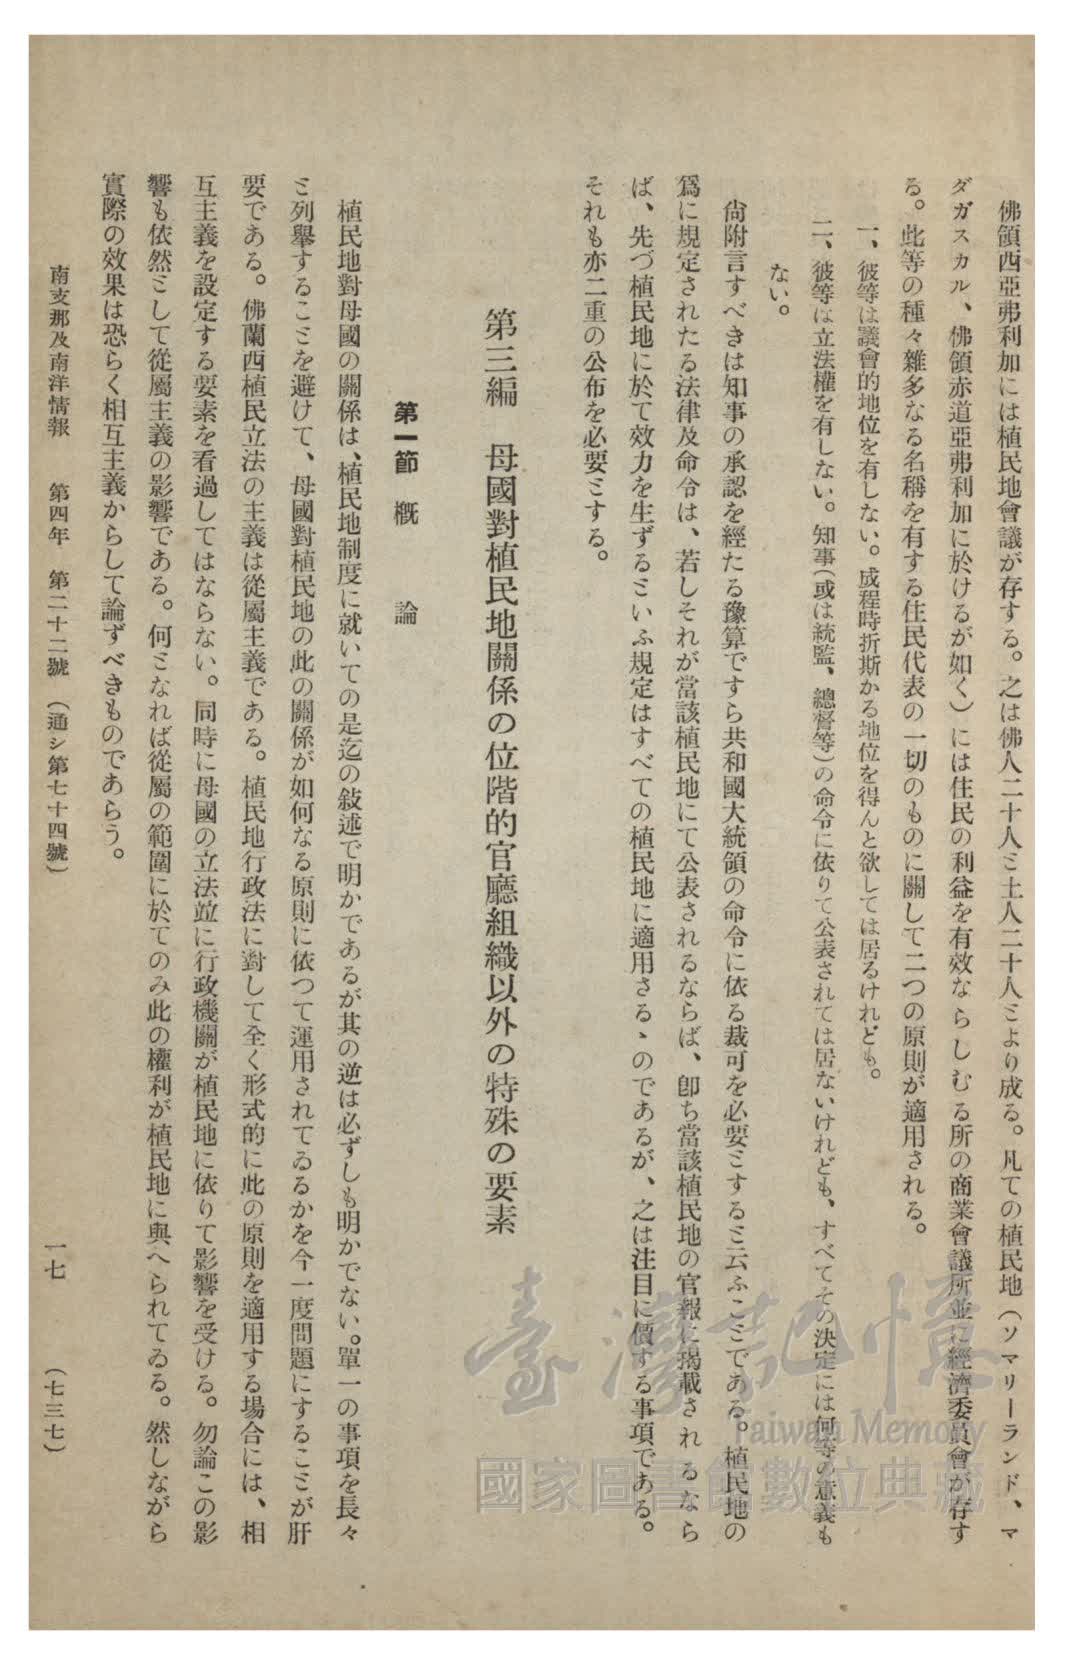 佛領西亞弗利加には植民地會議が存する。之は佛人二十人と土人二十人とより成る。凡ての植民地（ソマリーランド、マ
ダガスカル、佛領赤道亞弗利加に於けるが如く）には住民の利益を有效ならしむる所の商業會議所並に經濟委員會が存す
る。此等の種々雜多なる名稱を有する住民代表の一切のものに關して二つの原則が適用される。
一、彼等は議會的地位を有しない。成程時折斯かる地位を得んと欲しては居るけれども。
二、彼等は立法權を有しない。知事（或は統監、總督等）の命令に依りて公表されては居ないけれども、すべてその決定には何等の意義も
ない。
尙附言すべきは知事の承認を經たる豫算ですら共和國大統領の命令に依る裁可を必要とすると云ふことである。植民地の
爲に規定されたる法律及命令は、若しそれが當該植民地にて公表されるならば、卽ち當該植民地の官報に揭載されるなら
ば、先づ植民地に於て效力を生ずるといふ規定はすべての植民地に適用さるゝのであるが、之は注目に價する事項である。
それも亦二重の公布を必要とする。
第三編　母國對植民地關係の位階的官廳組織以外の特殊の要素
第一節　槪　論
植民地對母國の關係は、植民地制度に就いての是迄の敍述で明かであるが其の逆は必ずしも明かでない。單一の事項を長々
と列擧することを避けて、母國對植民地の此の關係が如何なる原則に依つて運用されてゐるかを今一度問題にすることが肝
要である。佛蘭西植民立法の主義は從屬主義である。植民地行政法に對して全く形式的に此の原則を適用する場合には、相
互主義を設定する要素を看過してはならない。同時に母國の立法並に行政機關が植民地に依りて影響を受ける。勿論この影
響も依然として從屬主義の影響である。何となれば從屬の範圍に於てのみ此の權利が植民地に與へられてゐる。然しながら
實際の效果は恐らく相互主義からして論ずべきものであらう。
南支那及南洋情報　第四年　第二十二號　（通シ第七十四號）
一七　（七三七）
臺灣記憶
Taiwan Memory
國家圖書館數位典藏